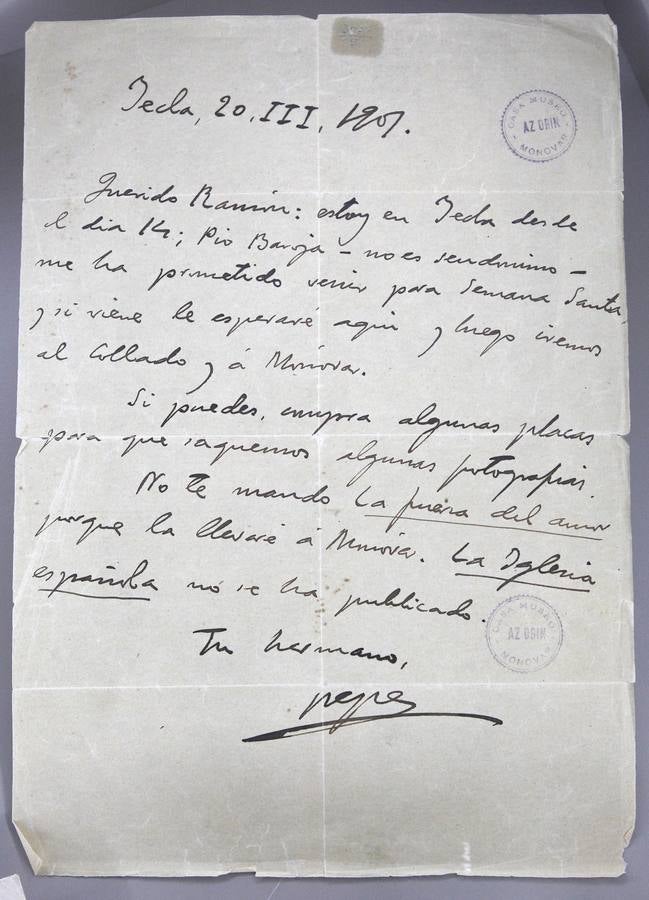 Yecla, 20, III, 1901.
CASA MUSEO
AZORIN
MONOVAR
Querido Ramón: estoy en Yecla desde
el dia 14; Pio Baroja – no es seudonimo –
me ha prometido venir para Semana Santa,
y si viene le esperaré aqui y luego iremos
al Collado y á Monóvar.
Si puedes, compra algunas placas
para que saquemos algunas fotografias.
No te mando La fuerza del amor
porque la llevaré á Monóvar. La Iglesia
española no se ha publicado.
CASA MUSEO
AZORIN
MONOVAR
Tu hermano,
pepe